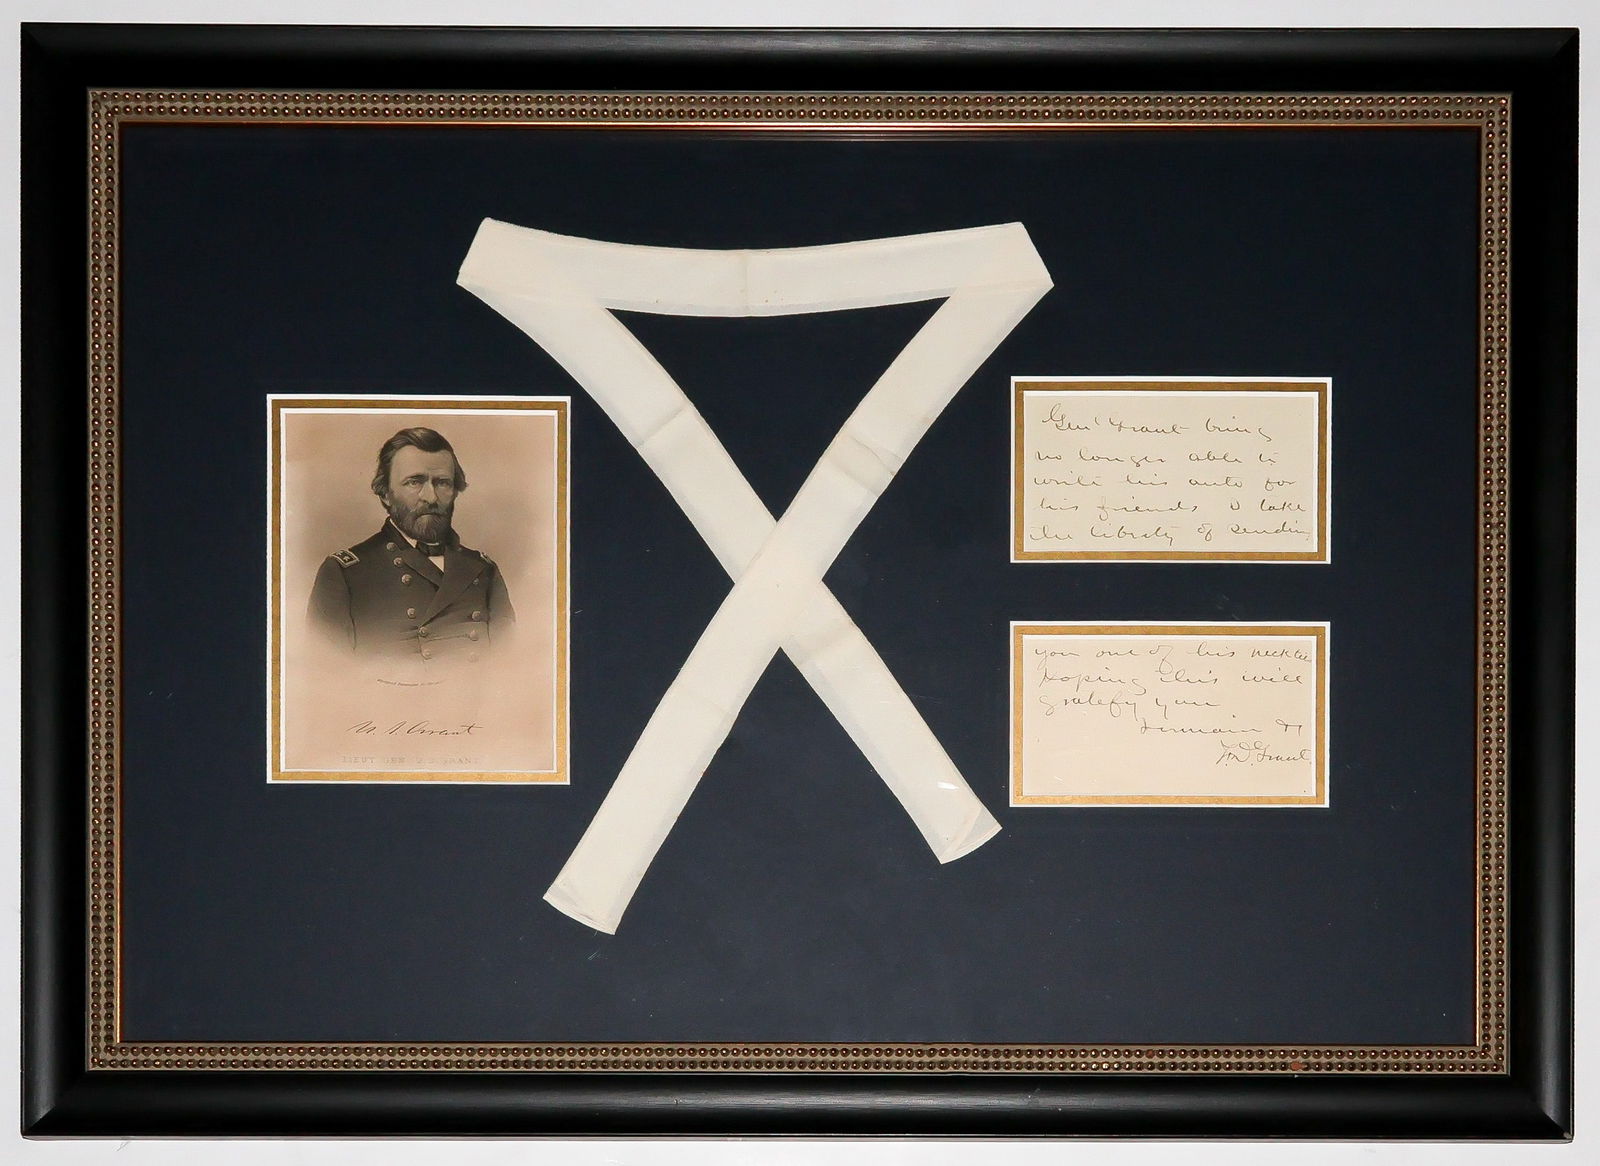 U. S. Grant
LIEUT. GEN. U.S. GRANT
Genl Grant being
no longer able to
write his auto for
his friends I take
the liberty of sending
you one of his neckties
hoping this will
gratify you
I remain &c
F. D. Grant.